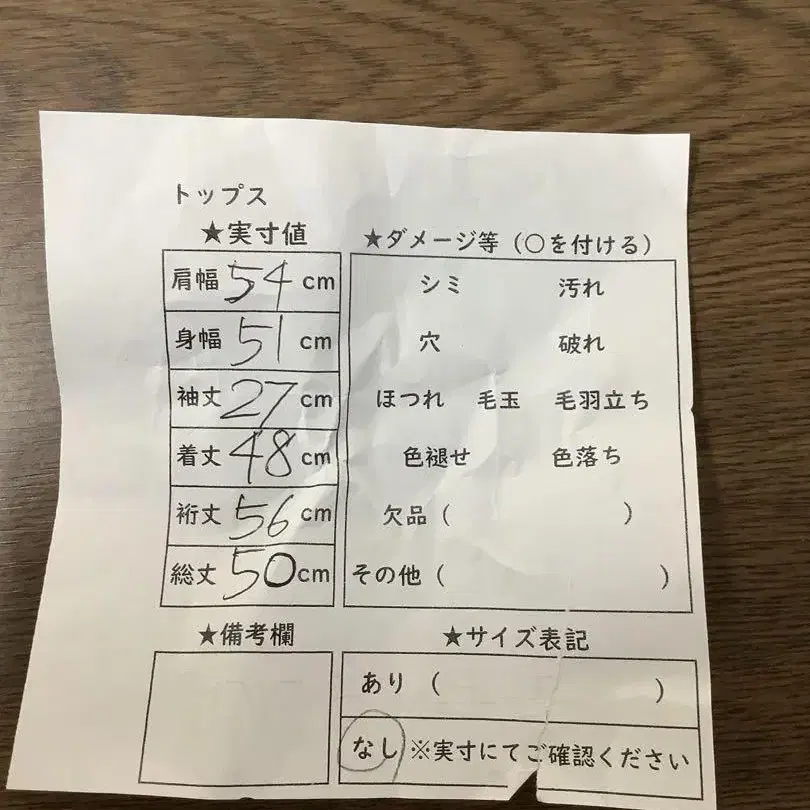 トップス
★実寸値
肩幅 54 cm
身幅 51 cm
袖丈 27 cm
着丈 48 cm
裄丈 56 cm
総丈 50 cm
★ダメージ等（〇を付ける）
シミ 汚れ
穴 破れ
ほつれ 毛玉 毛羽立ち
色褪せ 色落ち
欠品（ ）
その他（ ）
★備考欄
★サイズ表記
あり（ ）
なし ※実寸にてご確認ください